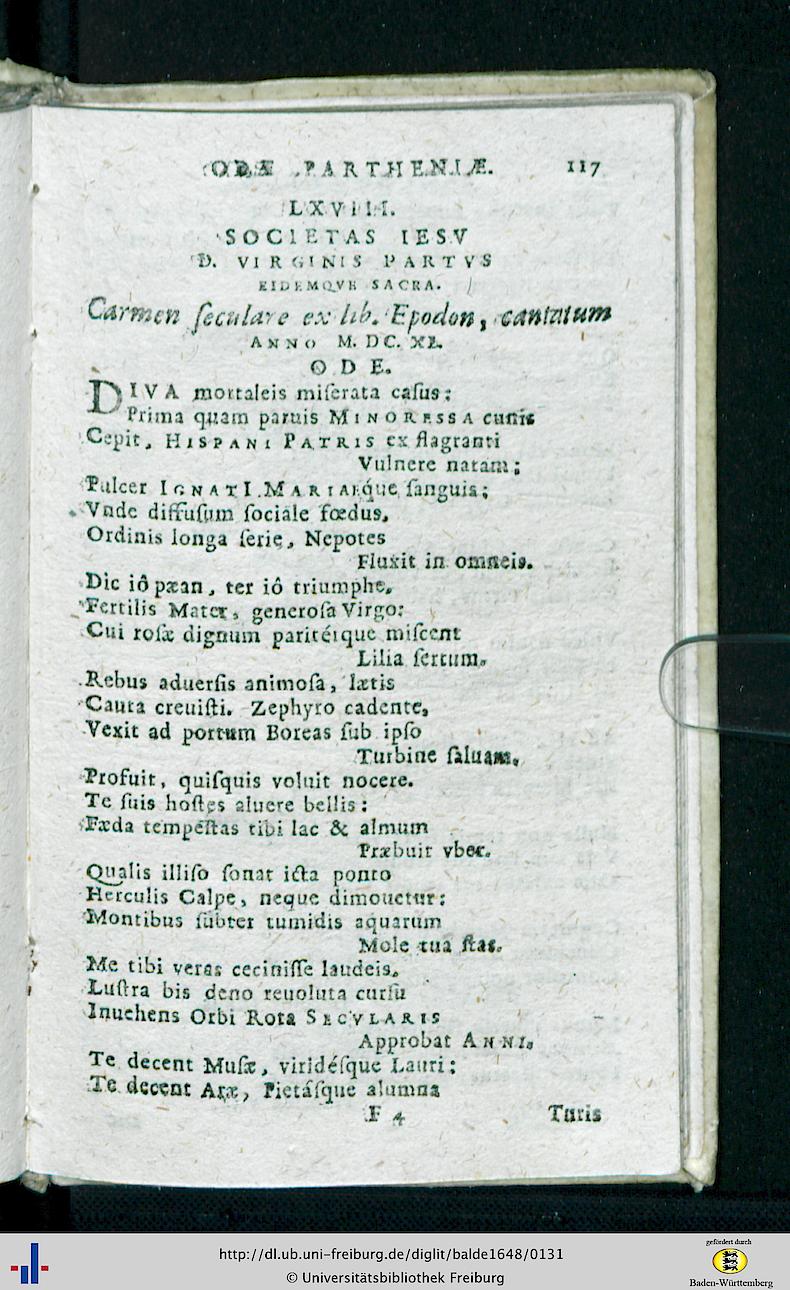 ODÆ PARTHENIÆ. 117
LXVIII.
SOCIETAS IESV
D. VIRGINIS PARTVS
EIDEMQVE SACRA.
Carmen ſeculare ex lib. Epodon, cantatum
ANNO M. DC. XL.
ODE.
DIVA mortaleis miſerata caſus:
Prima quam paruis MINORESSA cunis
Cepit, HISPANI PATRIS ex flagranti
Vulnere natam;
Pulcer IGNATI MARIAEque ſanguis;
Vnde diffuſum ſociale fœdus,
Ordinis longa ſerie, Nepotes
Fluxit in omneis.
Dic iô pæan, ter iô triumphe,
Fertilis Mater, generoſa Virgo:
Cui roſæ dignum paritérque miſcent
Lilia ſertum.
Rebus aduerſis animoſa, lætis
Cauta creuiſti. Zephyro cadente,
Vexit ad portum Boreas ſub ipſo
Turbine ſaluam.
Profuit, quiſquis voluit nocere.
Te ſuis hoſtes aluere bellis:
Fæda tempeſtas tibi lac & almum
Præbuit vber.
Qualis illiſo ſonat icta ponto
Herculis Calpe, neque dimouetur:
Montibus ſubter tumidis aquarum
Mole tua ſtas.
Me tibi veras ceciniſſe laudeis,
Luſtra bis deno reuoluta curſu
Inuehens Orbi Rota SECVLARIS
Approbat ANNI.
Te decent Muſæ, viridéſque Lauri:
Te decent Aræ, Pietáſque alumna
F 4 Turis
http://dl.ub.uni-freiburg.de/diglit/balde1648/0131
© Universitätsbibliothek Freiburg
gefördert durch
Baden-Württemberg